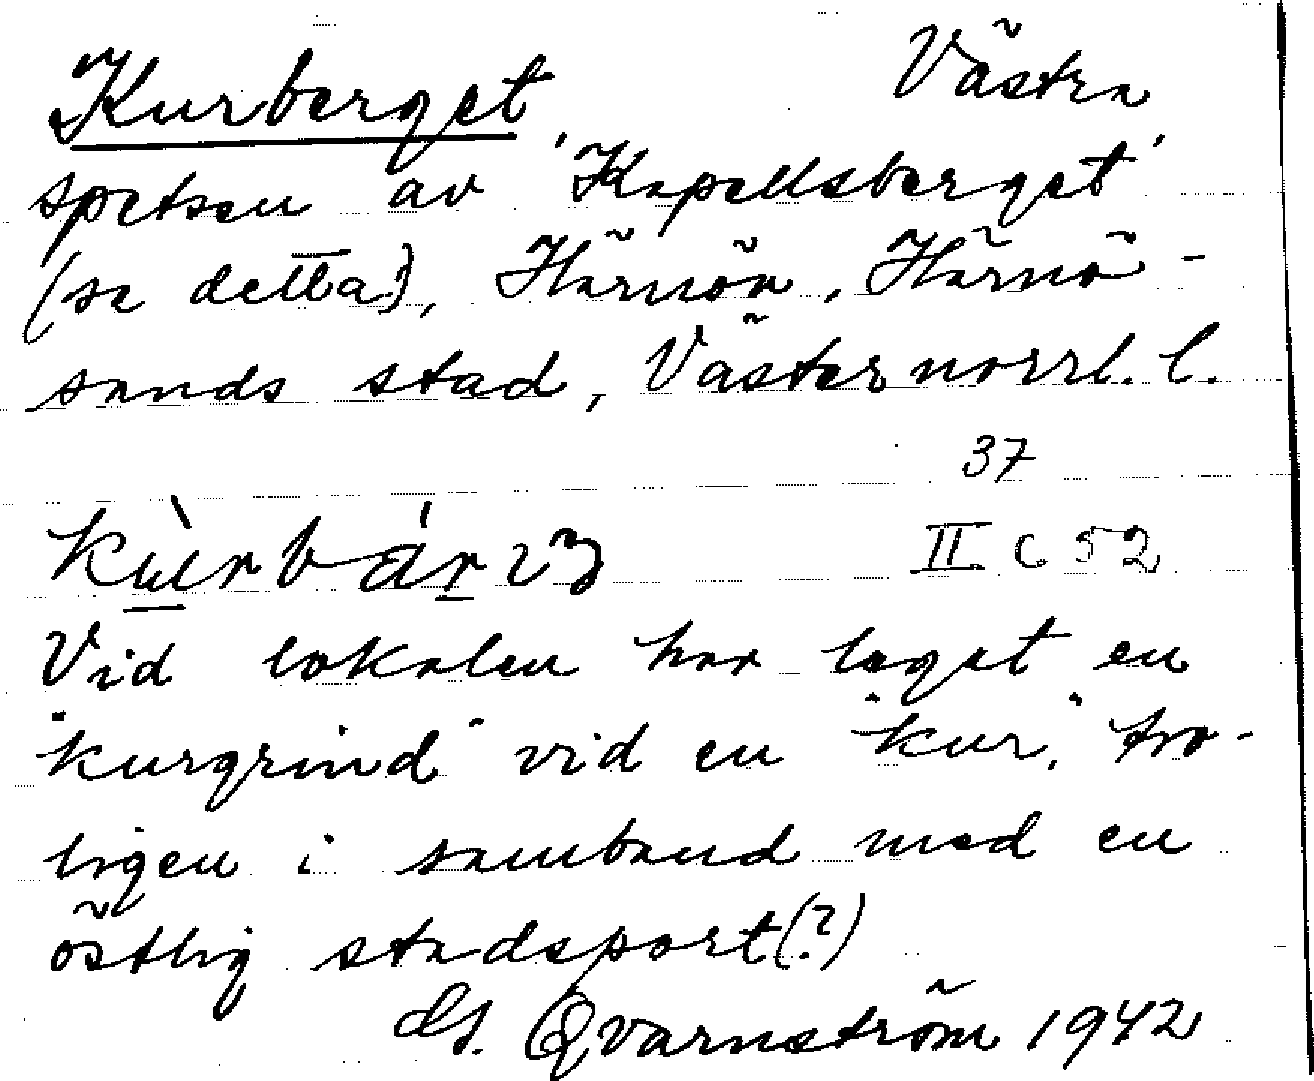 Kurberget Västra
spetsen av 'Kapellsberget'
(se detta), Härnön, Härnö-
sands stad, Västernorrl. l.
37
II C 52
Vid lokalen har legat en
"kurgrind" vid en "kur", tro-
ligen i samband med en
östlig stadsport(?)
Qvarnström 1942